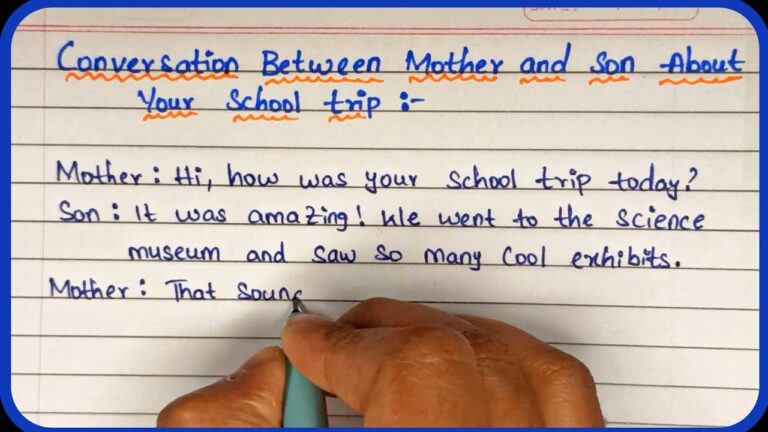 Conversation Between Mother and Son About
Your School trip :-
Mother : Hi, how was your school trip today?
Son : It was amazing! We went to the science
museum and saw so many cool exhibits.
Mother : That soun